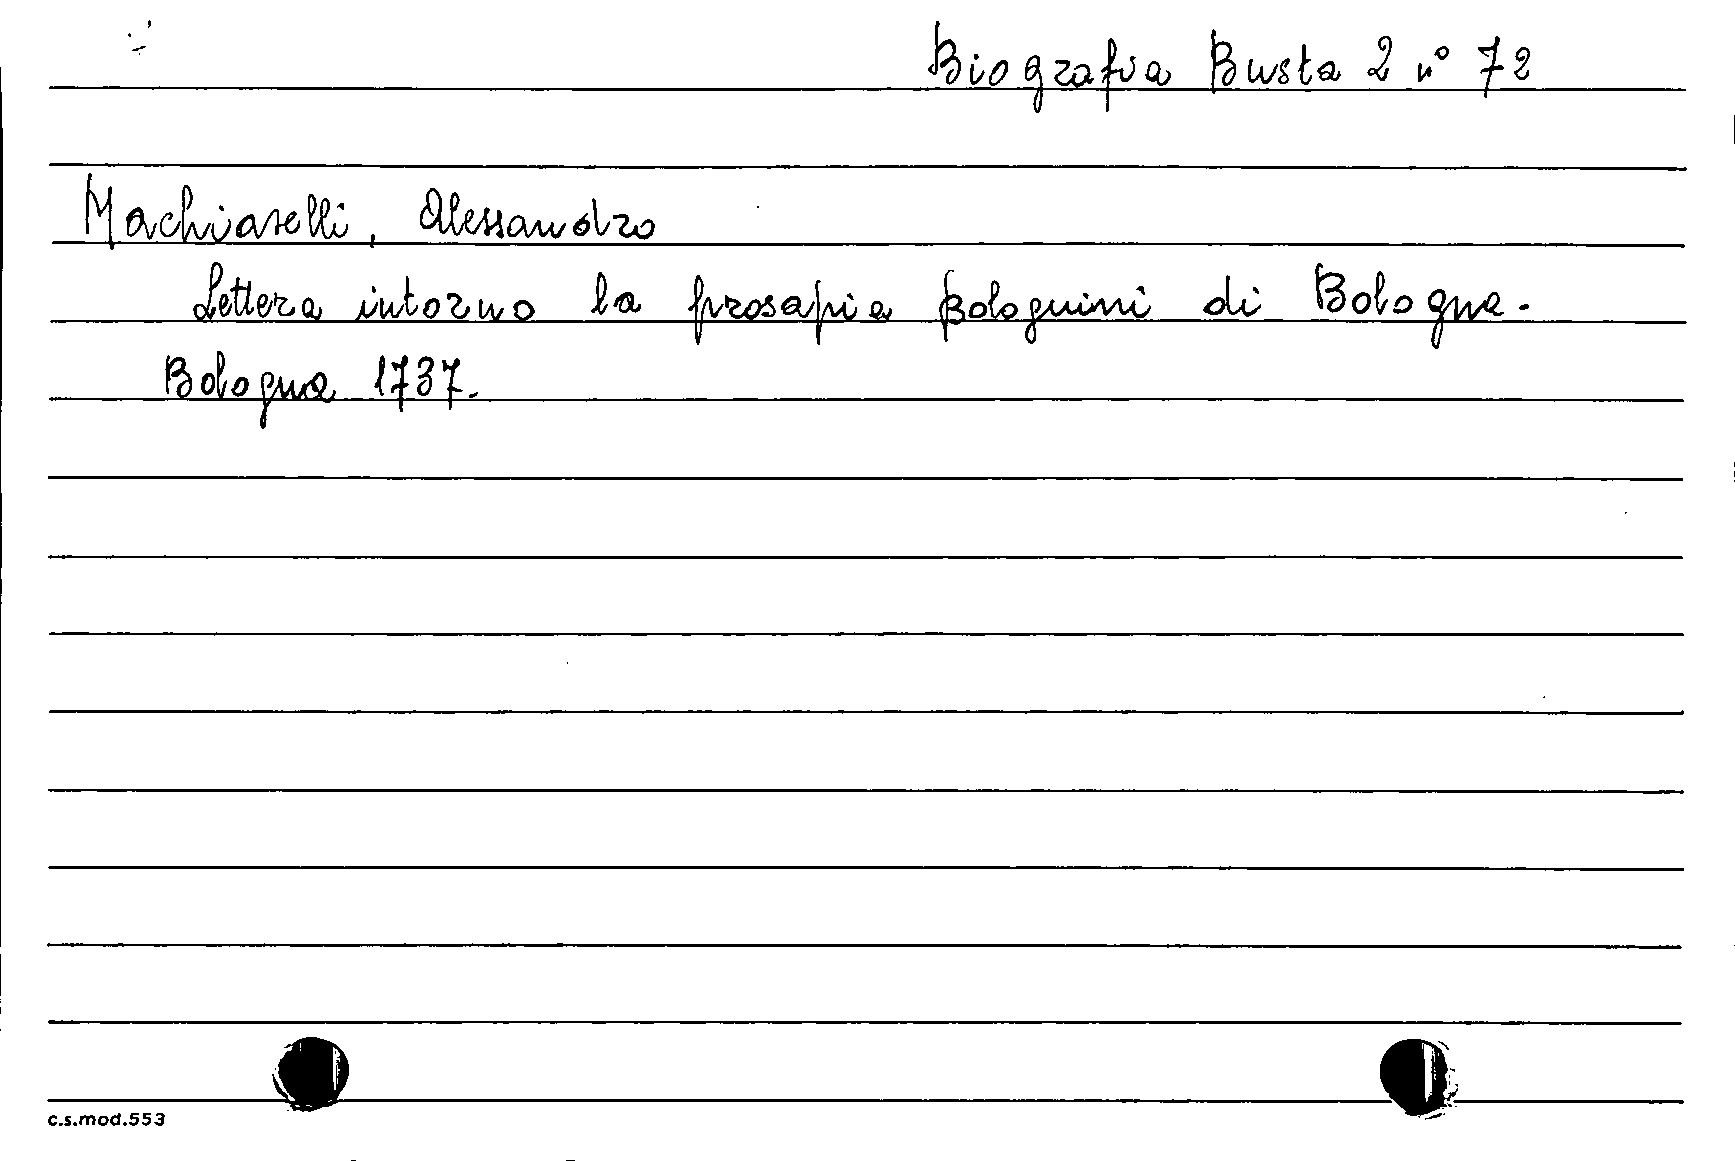 Biografia Busta 2 n° 72
Machiavelli, Alessandro
Lettera intorno la prosapia Bolognini di Bologna.
Bologna 1737.
c.s.mod.553